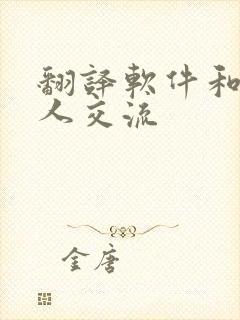 翻譯軟件和
人交流
金唐